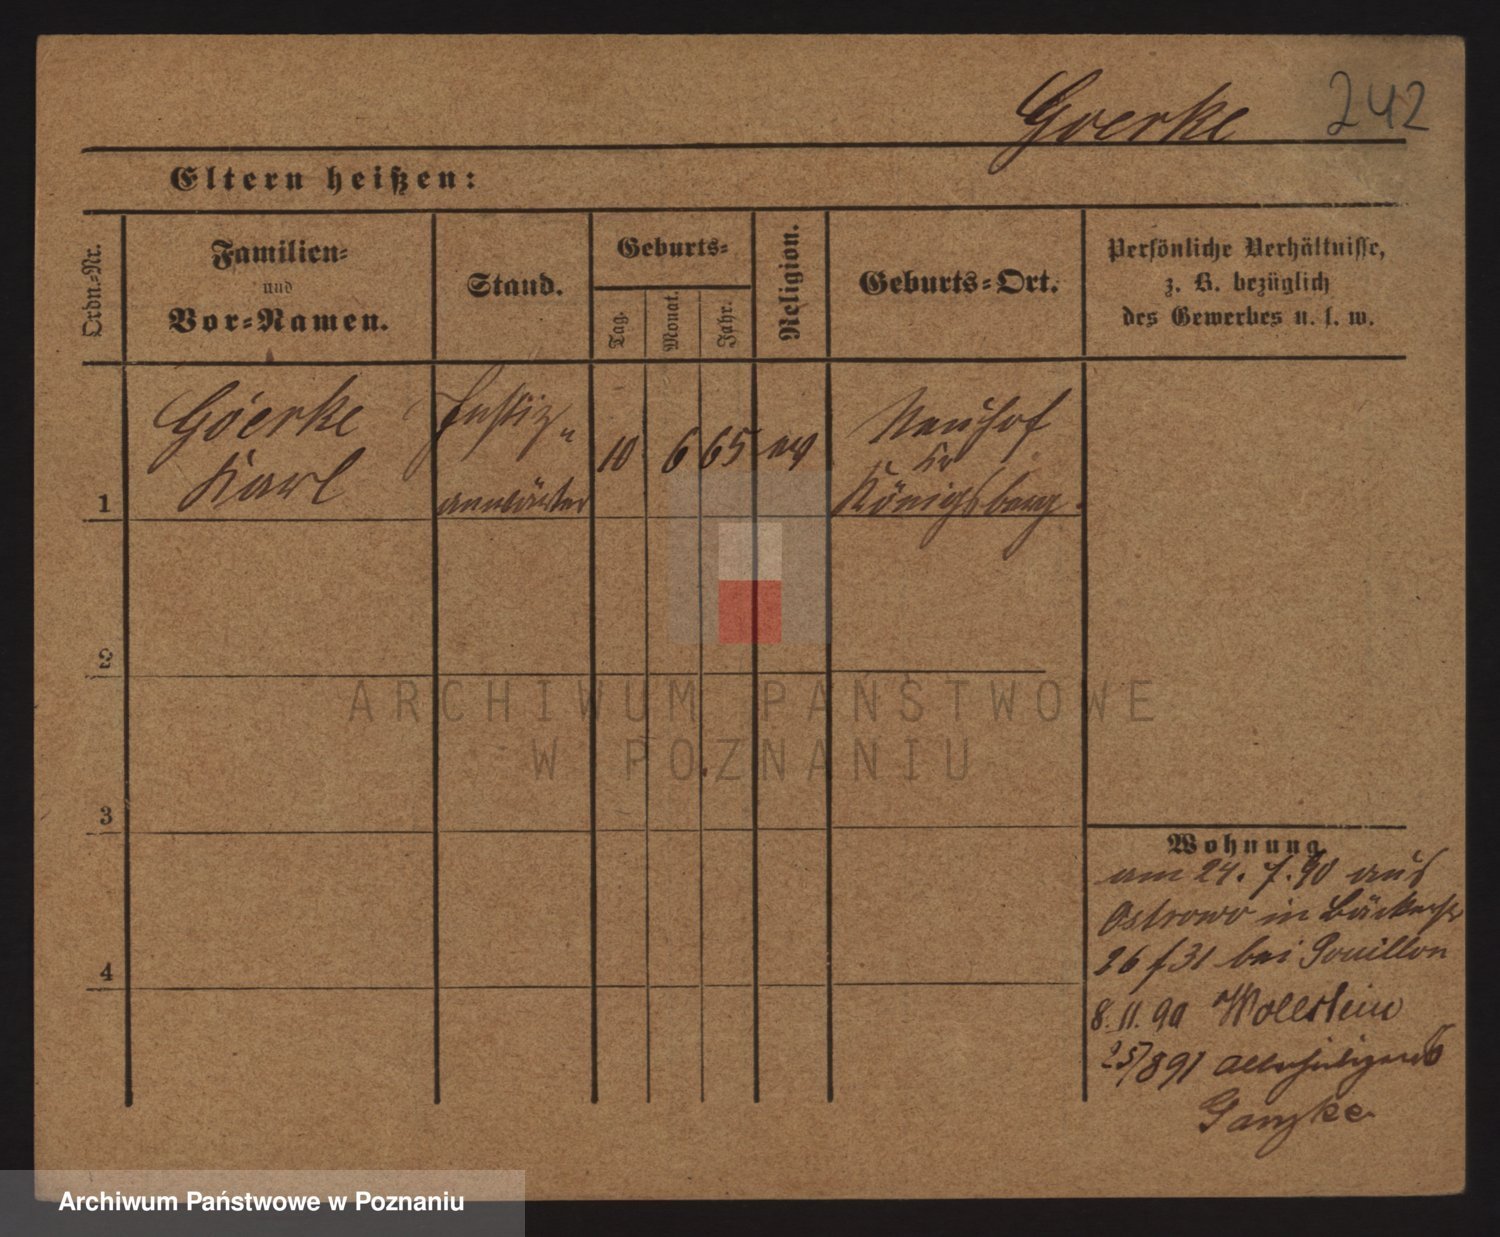 Goerke 242
Eltern heißen:
Ordn.-Nr.
Familien-
und
Vor-Namen.
Stand.
Geburts-
Tag.
Monat.
Jahr.
Religion.
Geburts-Ort.
Persönliche Verhältnisse,
z. B. bezüglich
des Gewerbes u. s. w.
1
Goerke
Karl
Justiz-
anwärter
10
6
65
ev
Neuhof
Kr
Königsberg.
2
3
4
Wohnung
am 24. 7. 90 aus
Ostrowo in Bäckerstr
26 / 31 bei Pouillon
8. 11. 90 Wollstein
25/8 91
ARCHIWUM PAŃSTWOWE
W POZNANIU
Archiwum Państwowe w Poznaniu